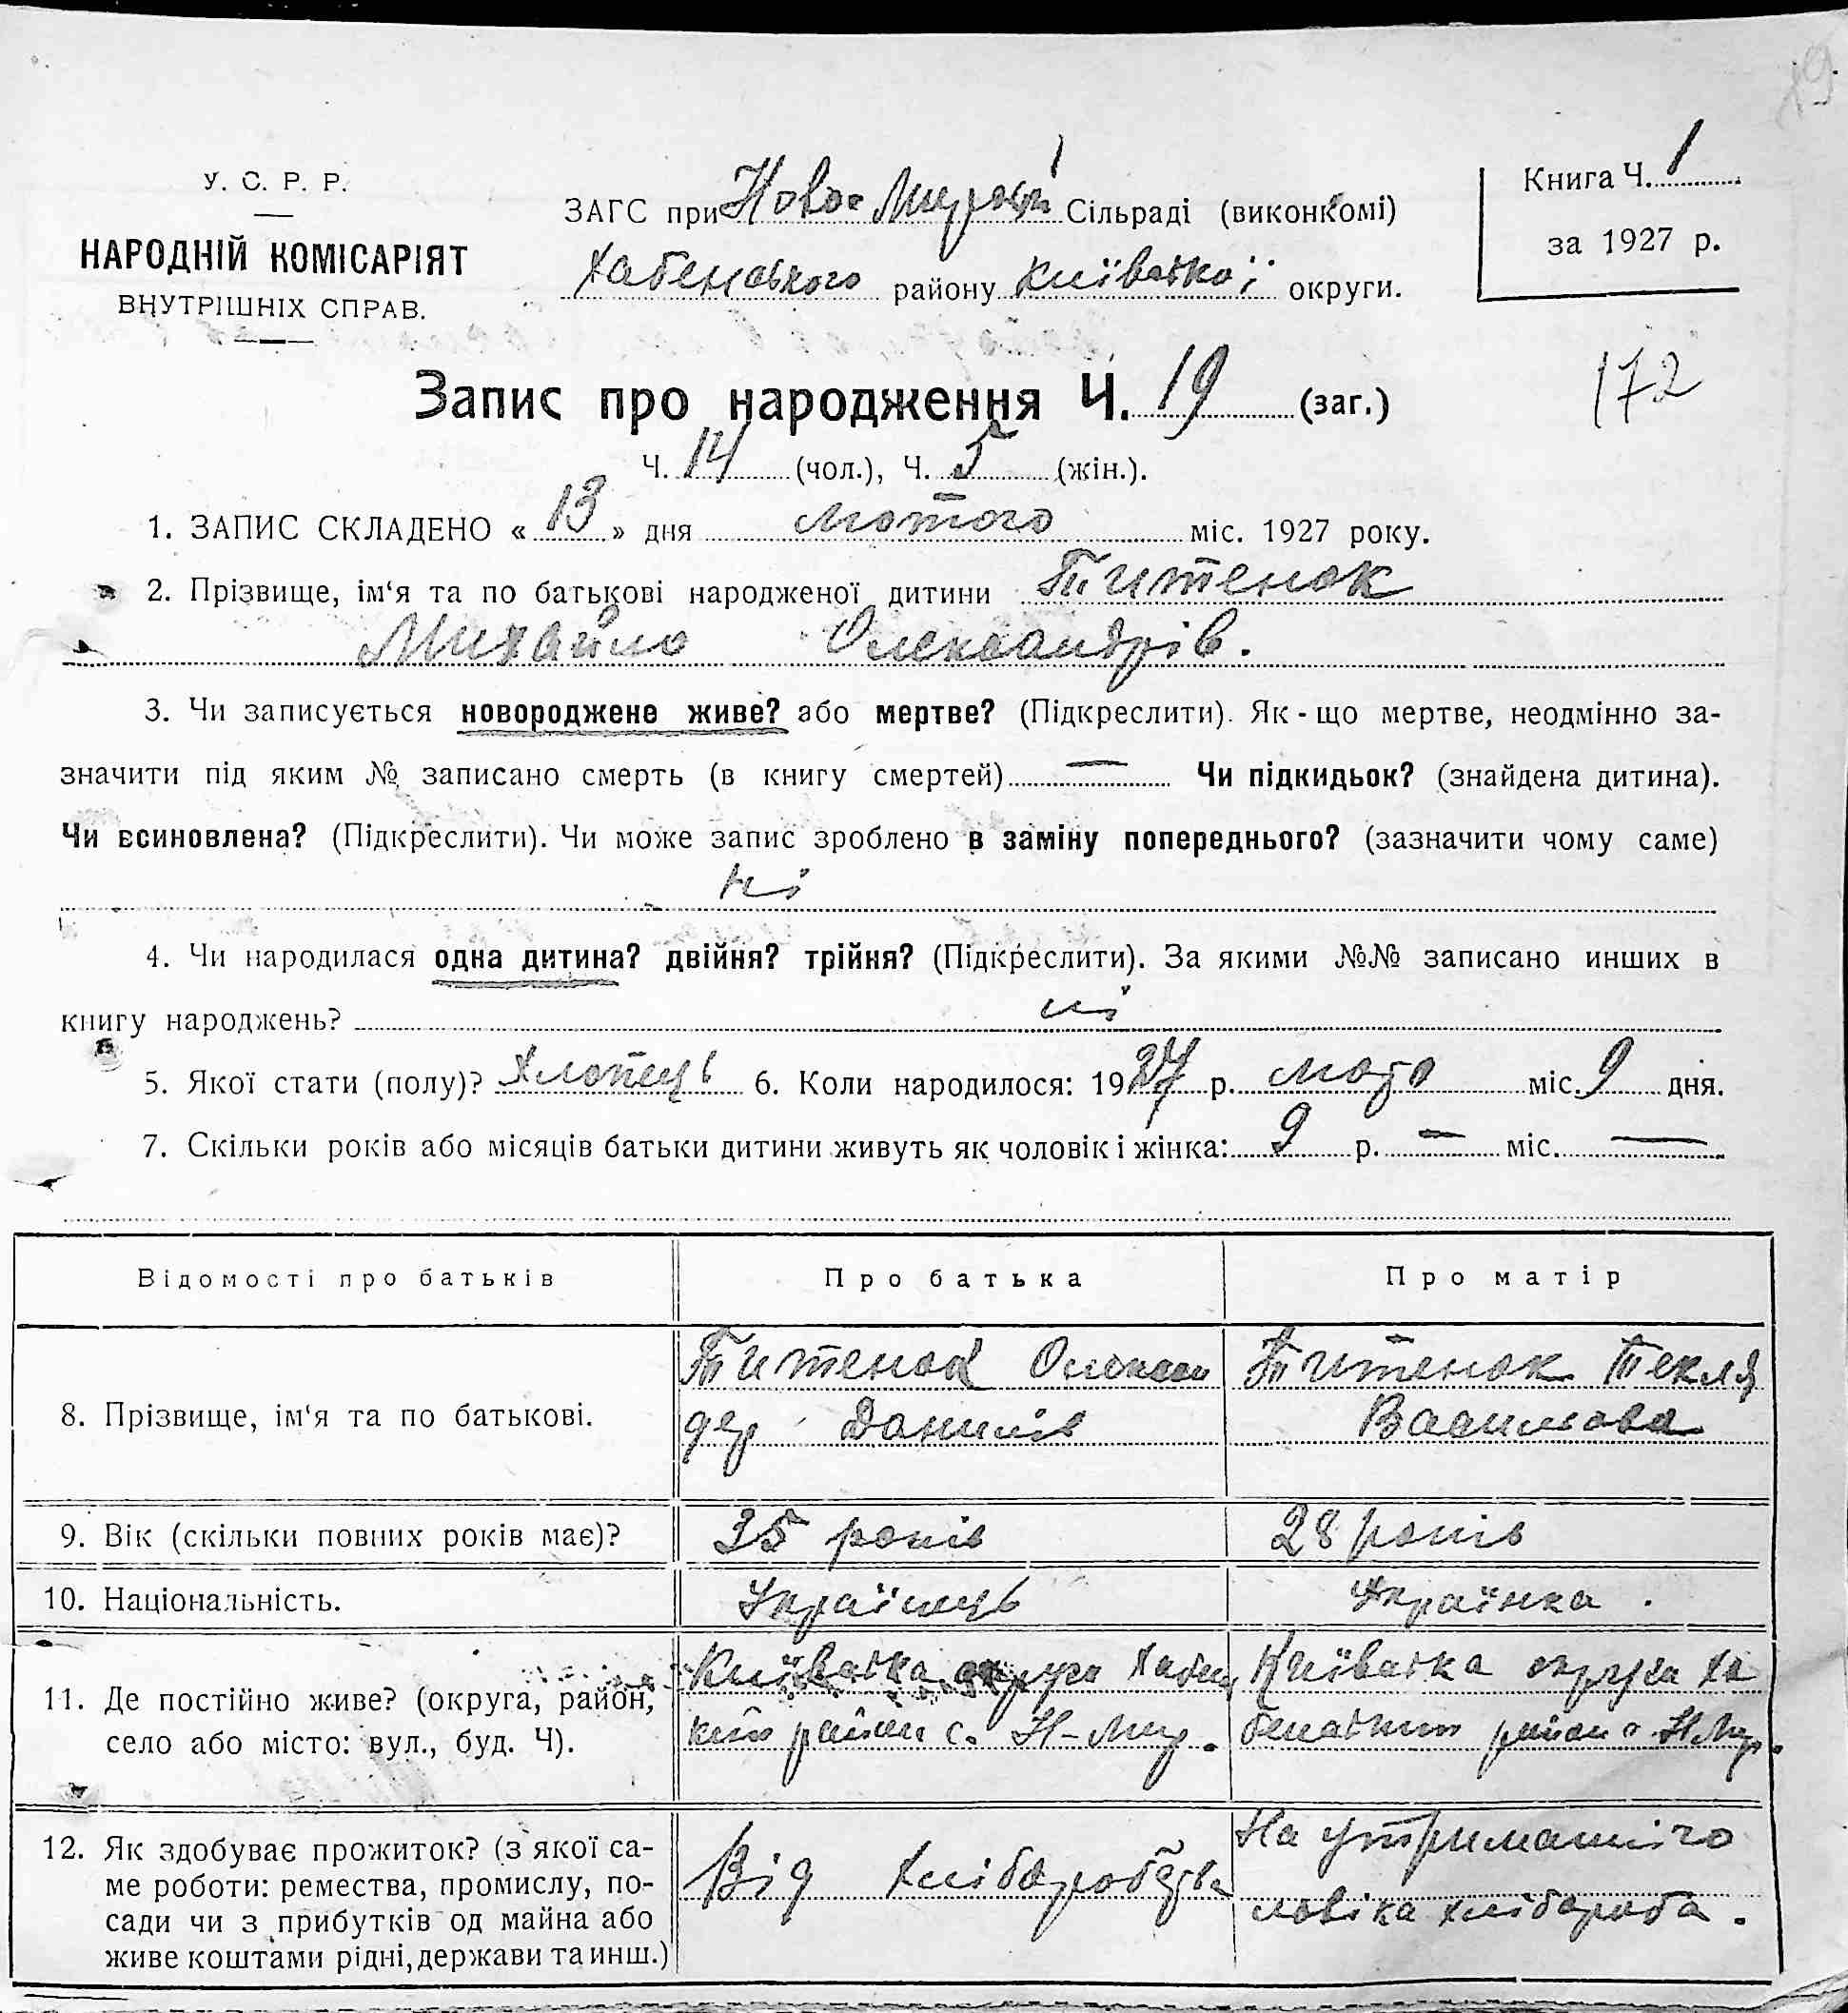 19
У. С. Р. Р.
НАРОДНІЙ КОМІСАРІЯТ
ВНУТРІШНІХ СПРАВ.
ЗАГС при Ново- Сільраді (виконкомі)
Хабенського району Київської округи.
Книга Ч. 1
за 1927 р.
Запис про народження Ч. 19 (заг.)
172
Ч. 14 (чол.), Ч. 5 (жін.).
1. ЗАПИС СКЛАДЕНО « 13 » дня лютого міс. 1927 року.
2. Прізвище, ім'я та по батькові народженої дитини Титенок
Михайло Олександрів.
3. Чи записується новороджене живе? або мертве? (Підкреслити). Як-що мертве, неодмінно за-
значити під яким № записано смерть (в книгу смертей) — Чи підкидьок? (знайдена дитина).
Чи всиновлена? (Підкреслити). Чи може запис зроблено в заміну попереднього? (зазначити чому саме)
ні
4. Чи народилася одна дитина? двійня? трійня? (Підкреслити). За якими №№ записано инших в
книгу народжень? ні
5. Якої стати (полу)? Хлопець 6. Коли народилося: 1927 р. міс. 9 дня.
7. Скільки років або місяців батьки дитини живуть як чоловік і жінка: 9 р. — міс. —
Відомості про батьків
Про батька
Про матір
8. Прізвище, ім'я та по батькові.
Титенок Олексан
др Данилів
Титенок Текля
Василова
9. Вік (скільки повних років має)?
35 років
28 років
10. Національність.
Українець
Українка.
11. Де постійно живе? (округа, район,
село або місто: вул., буд. Ч).
Київська округа Хабен
кий район с. Н-Мир.
Київська округа Ха
бенський район с Н Мир.
12. Як здобуває прожиток? (з якої са-
ме роботи: ремества, промислу, по-
сади чи з прибутків од майна або
живе коштами рідні, держави та инш.)
Від хліборобства
На утриманні чо
ловіка хлібороба.